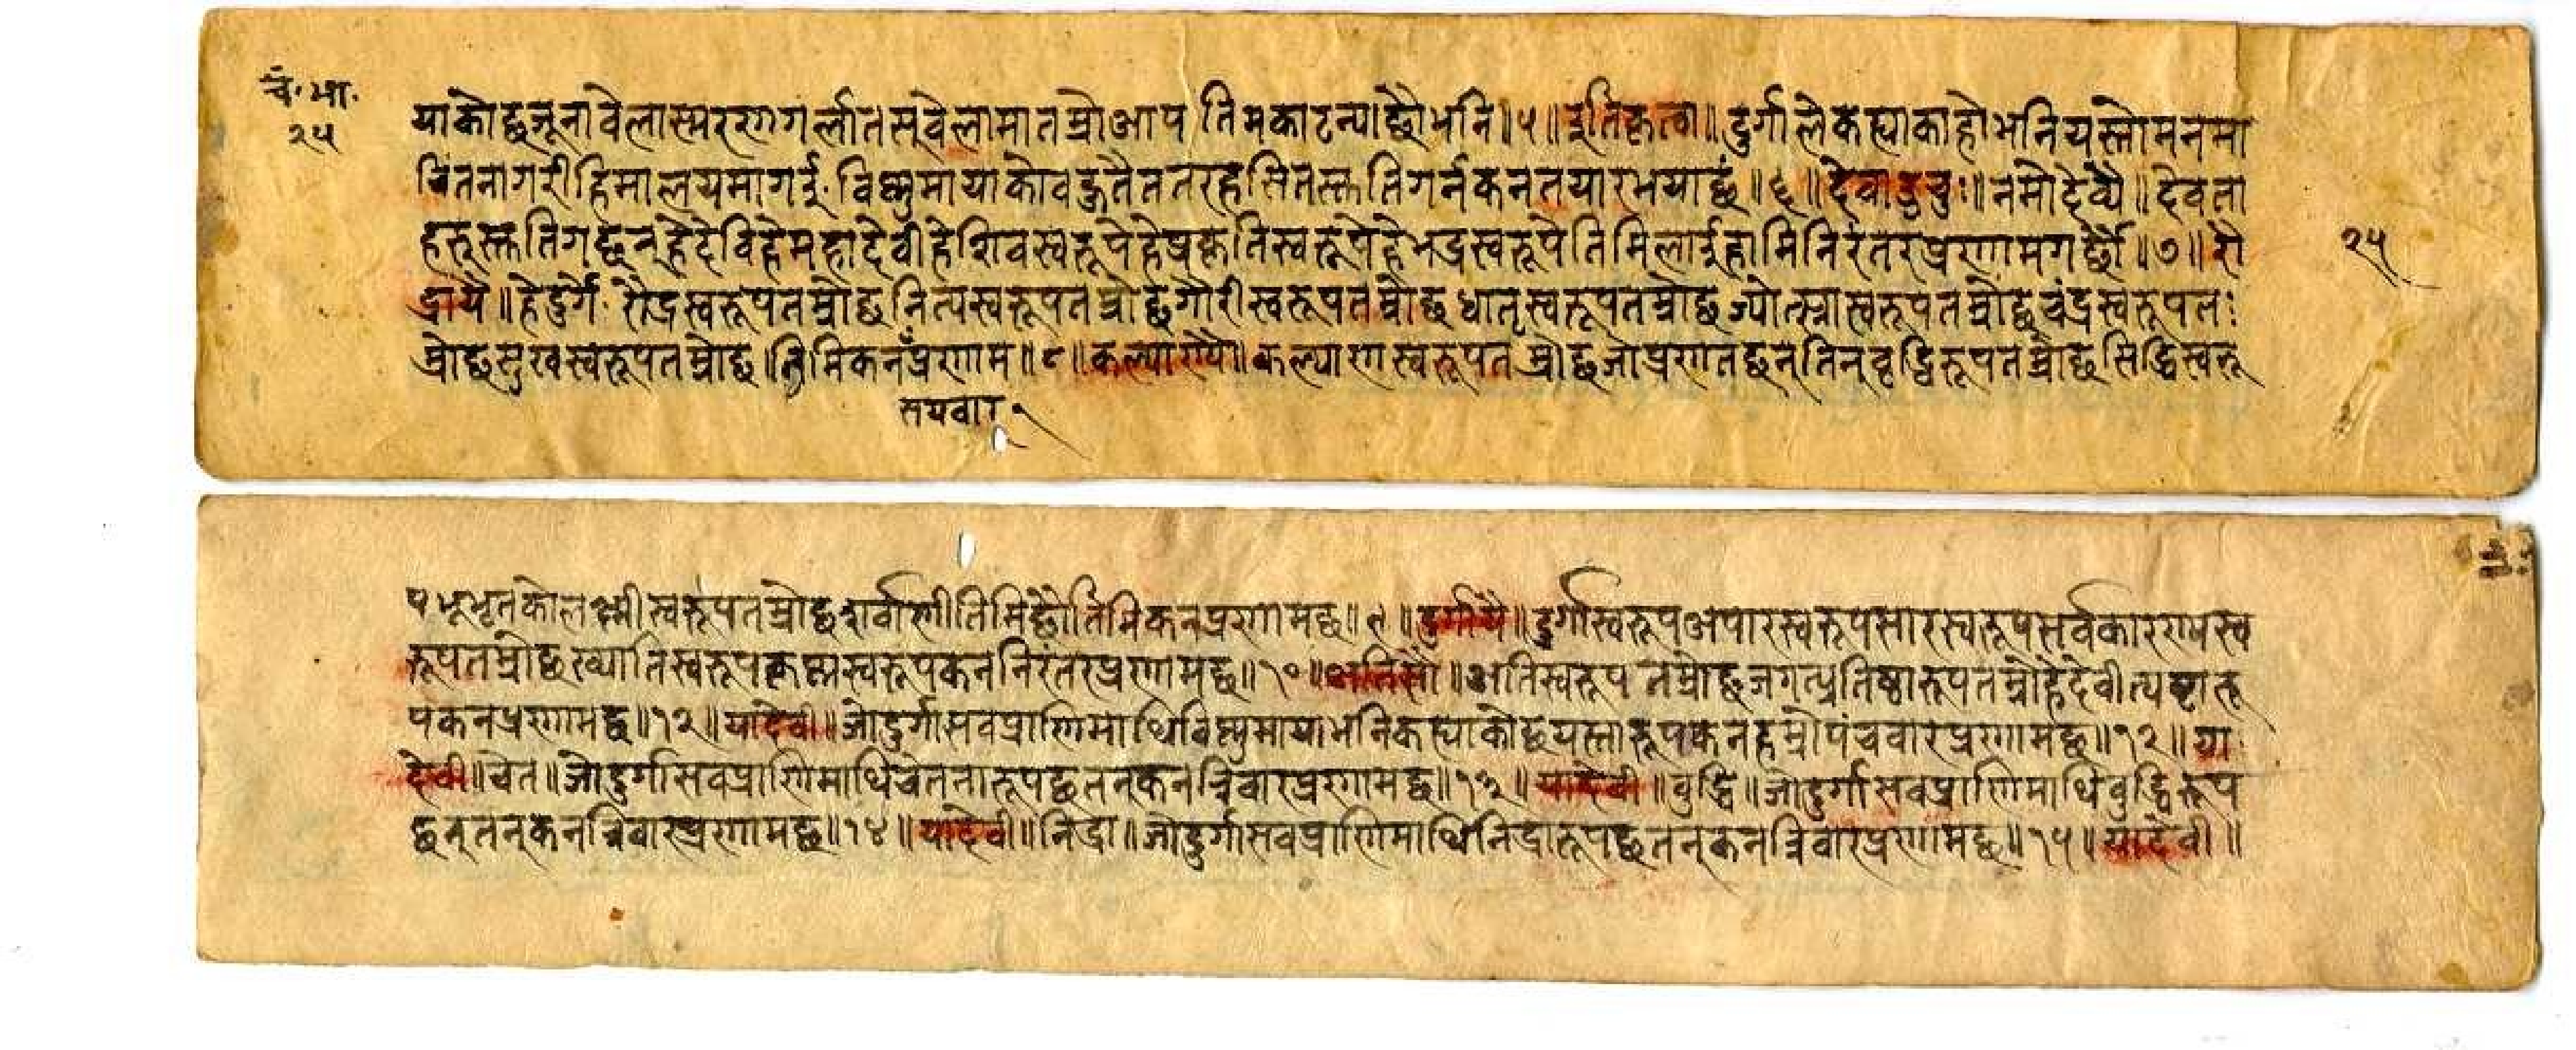 चं.भा.
२५
याकोछजूनावेलास्मरणगर्लातसुवेलामातम्रोआपत्तिमकाटन्याछौभनि॥५॥इतिकृत्वा॥दुर्गालेकह्याकाहोभनियस्तोमनमा
चितनागरीहिमालयमागई.विष्णुमायाकोवद्रुतैततरहसितस्तुतिगर्नकनतयारभयाछं॥६॥देवाऊचुः॥नमोदेव्यै॥देवता
हरूस्तुतिगछन्हेदेविहेमहादेवीहेशिवस्वरूपेहेप्रकृतिस्वरूपेहेभद्रस्वरूपेतिमिलाईहामिनिरंतरप्रणामगर्छौ॥७॥रौ
२५
द्रायै॥हेदुर्गे.रौद्रस्वरूपतम्रोछनित्यस्वरूपतम्रोछगौरीस्वरूपतम्रोछधातृस्वरूपतम्रोछज्योत्स्नास्वरूपतम्रोछचंद्रस्वरूपतः
म्रोछसुखस्वरूपतम्रोछ।तिमिकनप्रणाम॥८॥कल्याण्यै॥कल्याणस्वरूपतम्रोछजोप्रणतछन्तिन्वृद्धिरूपतम्रोछसिद्धिस्वरू
सयवार
पभूभृतकोलक्ष्मीस्वरूपतम्रोछशर्वाणीतिमिछौतिमिकनप्रणामछ॥९॥दुर्गायै॥दुर्गास्वरूपअपारस्वरूपसारस्वरूपसर्वकारणस्व
रूपतम्रोछख्यातिस्वरूपकृष्णस्वरूपकननिरंतरप्रणामछ॥१०॥अतिसौ॥अतिस्वरूपतम्रोछजगत्प्रतिष्ठारूपतम्रोहेदेवीत्यष्टारू
पकनप्रणामछ॥१२॥यादेवी॥जोदुर्गासवप्राणिमाथिविष्णुमायाभनिकह्याकोछयस्तारूपकनहाम्रोपंचवारप्रणामछ॥१२॥या
देवी॥चेत॥जोदुर्गासवप्राणिमाथिचेतनारूपछतनकनत्रिवारप्रणामछ॥१३॥यादेवी॥वुद्धि॥जोदुर्गासवप्राणिमाथिवुद्धिरूप
छन्तनकनत्रिवारप्रणामछ॥१४॥यादेवी॥निद्रा॥जोदुर्गासवप्राणिमाथिनिद्रारूपछतनकनत्रिवारप्रणामछ॥१५॥यादेवी॥